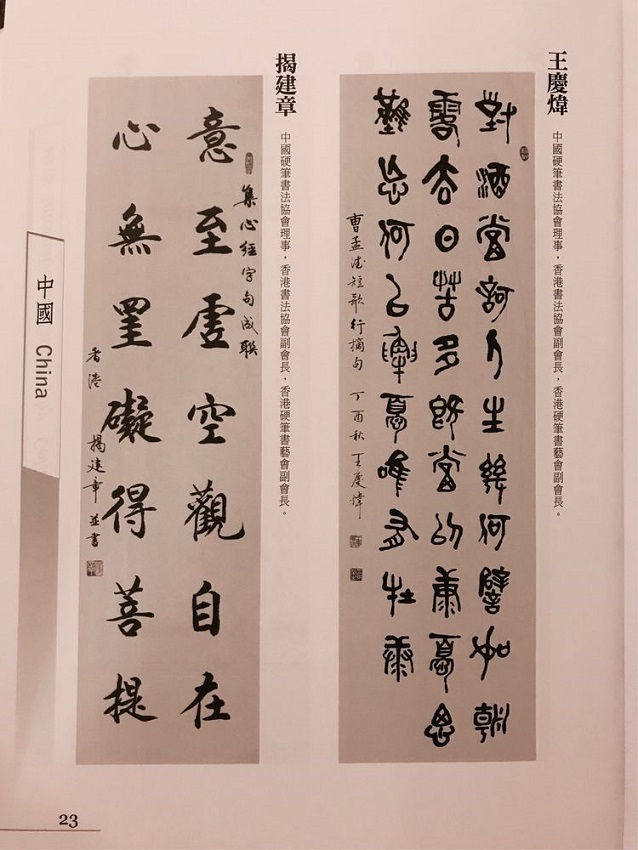 王慶煒
中國硬筆書法協會理事，香港書法協會副會長，香港硬筆書藝會副會長。
對酒當歌人生幾何譬如朝
露去日苦多慨當以慷憂思
難忘何以解憂唯有杜康
曹孟德短歌行摘句 丁酉秋 王慶煒
揭建章
中國硬筆書法協會理事，香港書法協會副會長，香港硬筆書藝會副會長。
集心經字句成聯
意至虛空觀自在
心無罣礙得菩提
香港 揭建章並書
中國 China
23